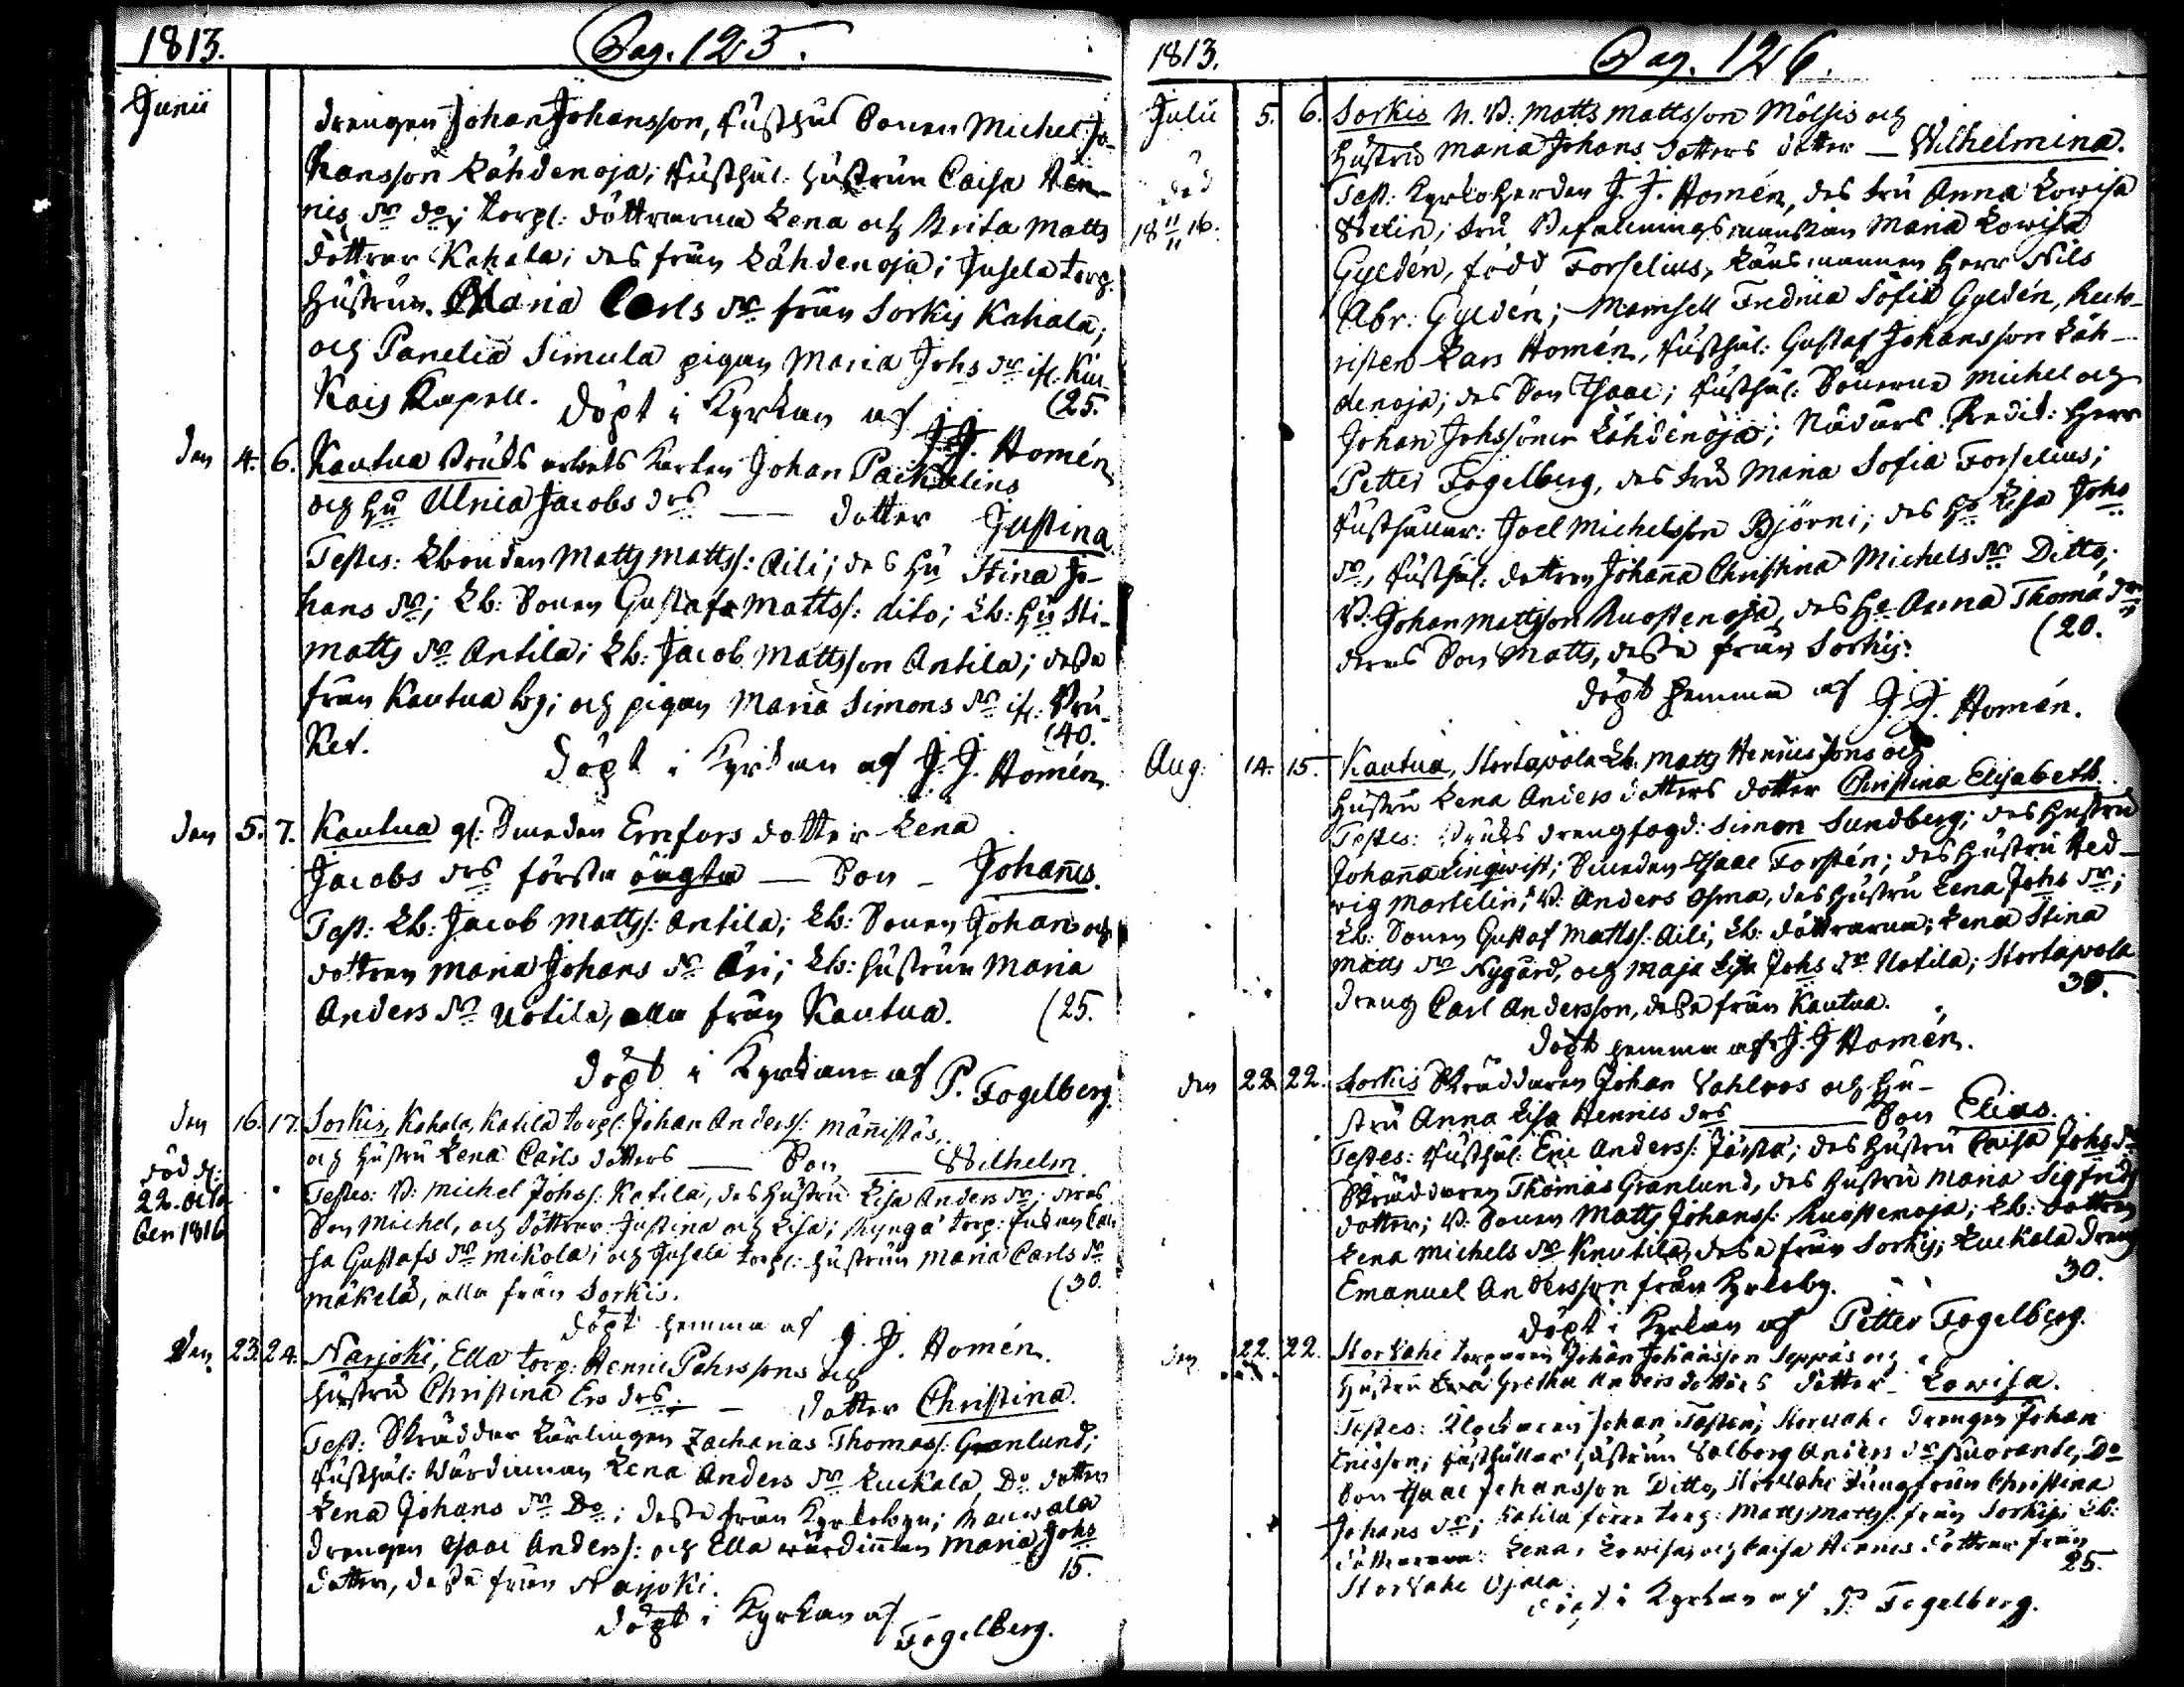 1813. Pag. 125.
Junii
drengen Johan Johansson, Rusthåls Sonen Michel Jo-
hansson Lähdenoja; Rusthål. hustrun Caisa Hen-
rics dr do; torp: döttrarna Lena och Brita Matts
döttrar Kahala; des från Lähdenoja; Jusela torp.
hustrun Maria Carls dr från Sorkis Kahala;
och Panelia Simula pigan Maria Johs dr if: Kiu-
kais Kapell. (25.
döpt i Kyrkan af J. J. Homén
den 4. 6. Kautua Bruks arbets Karlen Johan Pachalius
och hu Ulrica Jacobs drs — dotter Justina.
Testes: Lbonden Matts Mattss: Aili; des hu Stina Jo-
hans dr; Lb: Sonen Gustaf Mattss: dito; Lb: hu Sti-
Matts dr Antila; Lb: Jacob Mattsson Antila; dessa
från Kautua by; och pigan Maria Simons dr if. Bru-
ket. (40.
döpt i Kyrkan af J. J. Homén
den 5. 7. Kautua gl: Smeden Ernfors dotter Lena
Jacobs drs första oägta — Son — Johannes.
Test: Lb: Jacob Mattss: Antila; Lb: Sonen Johan och
dottren Maria Johans dr Äri; Lb: hustrun Maria
Anders dr Uotila, alla från Kautua. (25.
döpt i Kyrkan af P. Fogelberg.
den 16. 17. Sorkis, Kahala, Katila torp: Johan Anderss: Männistös
och hustru Lena Carls dotters — Son — Wilhelm.
död d:
22. octo
ber 1816
Testes: B: Michel Johss: Katila, des hustru Lisa Anders dr; deras
Son Michel, och döttrar Justina och Lisa; torp: Cai-
sa Gustafs dr Mikola; och Jusela torp: hustrun Maria Carls dr
Mäkelä, alla från Sorkis. (30.
döpt hemma af J. J. Homén.
den 23. 24. Narjoki, Ella torp: Henric Pehrssons och
hustru Christina Ers drs — dotter Christina.
Test: Skräddar Lärlingen Zacharias Thomass: Granlund;
Rusthål: Värdinnan Lena Anders dr Luckala, Do dotter
Lena Johans dr Do; dessa från Kyrkobyn;
drengen Isaac Anderss: och Ella värdinnan Maria Johs
dotter, dessa från Narjoki. 15.
döpt i Kyrkan af Fogelberg.
1813. Pag. 126.
Julii 5. 6. Sorkis N. B: Matts Mattsson Mölsis och
hustru Maria Johans dotters dotter — Wilhelmina.
död
18 11/11 16.
Test: Kyrkoherden J. J. Homén, des fru Anna Lowisa
Welin; fru Befalningsmanskan Maria Lowisa
Gyldén, född Forselius, Länsmannen Herr Nils
Abr: Gyldén; Mamsell Fredrica Sofia Gyldén,
Lars Homén, Rusthål: Gustaf Johansson Läh-
denoja; des Son Isaac; Rusthål: Sönerna Michel och
Johan Johssöner Lähdenoja; Nådårs Predik: Herr
Petter Fogelberg, des fru Maria Sofia Forselius;
Rusthållar: Joel Michelsson Björni; des ho Lisa Johs
dr, Rusthål: dottren Johanna Christina Michels dr Ditto;
B: Johan Mattsson Ruostenoja, des ho Anna Thomæ dr
deras Son Matts, dessa från Sorkis. (20.
döpt hemma af J. J. Homén.
Aug: 14. 15. Kautua, Stortapola Lb. Matts Henricssons och
hustru Lena Anders dotters dotter Christina Elisabeth.
Testes: Bruks drengfogd: Simon Sundberg; des hustru
Johanna Linqwist; Smeden Isaac Forstén; des hustru Hed-
vig Martelin; B: Anders Osma, des hustru Lena Johs dr;
Lb: Sonen Gustaf Mattss: Aili, Lb: döttrarna; Lena Stina
Matts dr Nygård, och Maja Lisa Johs dr Uotila; Stortapola
dreng Carl Andersson, dessa från Kautua. 30.
döpt hemma af J. J Homén.
den 22. 22. Sorkis Skräddaren Johan Sahlroos och hu-
stru Anna Lisa Henrics drs — Son Elias.
Testes: Rusthål: Eric Anderss: Jaista; des hustru Caisa Johs dr
Skräddaren Thomas Granlund, des hustru Maria Sigfrids
dotter; B: Sonen Matts Johanss: Ruostenoja; Lb: dottren
Lena Michels dr Knutila, dessa från Sorkis; Luckala dreng
Emanuel Andersson från Kyrkoby. 30.
döpt i Kyrkan af Petter Fogelberg.
den 22. 22. Storvahe Johan Johansson Seppäs och
hustru Gretha Anders dotters dotter — Lowisa.
Testes: Klockaren Johan Tastén; Storvahe drengen Johan
Ericsson; Rusthållar hustrun Walborg Anders dr Do
Son Isaac Johansson Ditto, Storvahe Jungfrun Christina
Johans dr; Katila förra torp: Matts Mattss: från Sorkis; Lb:
döttrarna: Lena, Lowisa och Caisa Henrics döttrar från
Storvahe Ojala. 25.
döpt i Kyrkan af P. Fogelberg.